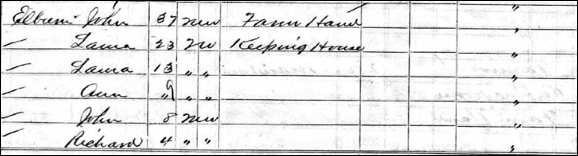 John 37 Mw Farm Hand "
— Laura 23 " Keeping House "
— Laura 13 " " "
— Ann 9 " " "
— John 8 Mw "
— Richard 4 " " "